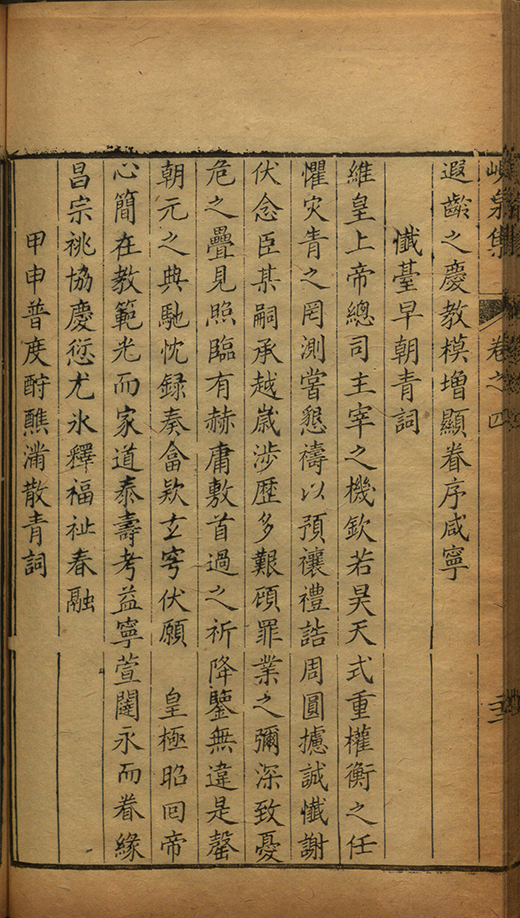 峴泉集 卷之四
遐齡之慶教模增顯眷序咸寧
懴臺早朝青詞
維皇上帝總司主宰之機欽若昊天式重權衡之任
懼灾青之罔測嘗懇禱以預禳禮誥周圓攄誠懴謝
伏念臣某嗣承越歲涉歷多艱頋罪業之彌深致憂
危之疊見照臨有赫庸敷首過之祈降鑒無違是罄
朝元之典馳忱録奏畣欵玄穹伏願 皇極昭囘帝
心簡在教範光而家道泰壽考益寧萱闥永而眷緣
昌宗祧協慶愆尤氷釋福祉春融
甲申普度酧醮滿散青詞